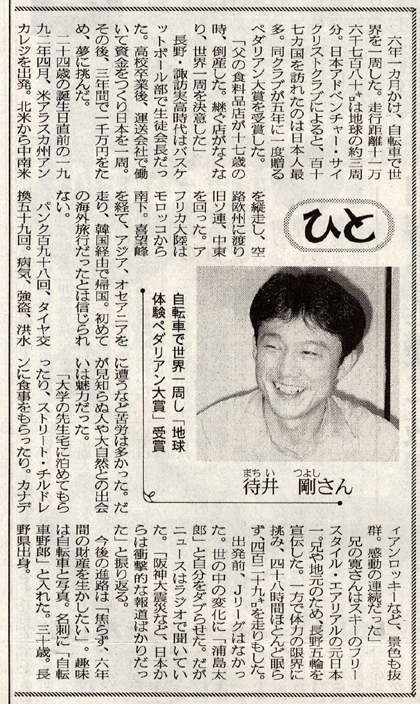 六年一カ月かけ、自転車で世
界を一周した。走行距離十一万
六千七百八十㌔は地球の約三周
分。日本アドベンチャー・サイ
クリストクラブによると、百十
七カ国を訪れたのは日本人最
多。同クラブが五年に一度贈る
ペダリアン大賞を受賞した。
「父の食料品店が十七歳の
時、倒産した。継ぐ店がなくな
り、世界一周を決意した」
長野・諏訪実高時代はバスケ
ットボール部で生徒会長だっ
た。高校卒業後、運送会社で働
いて資金をつくり日本を一周。
その後、三年間で一千万円をた
め、夢に挑んだ。
二十四歳の誕生日直前の一九
九二年四月、米アラスカ州アン
カレジを出発。北米から中南米
ひと
を縦走し、空
路欧州に渡り
旧ソ連、中東
を回った。ア
フリカ大陸は
モロッコから
南下。喜望峰
を経て、アジア、オセアニアを
走り、韓国経由で帰国。初めて
の海外旅行だったとは信じられ
ない。
パンク百九十八回、タイヤ交
換五十九回。病気、強盗、洪水
自転車で世界一周し「地球
体験ペダリアン大賞」受賞
まちい つよし
待井 剛さん
に遭うなど苦労は多かった。だ
が見知らぬ人や大自然との出会
いは魅力だった。
「大学の先生宅に泊めてもら
ったり、ストリート・チルドレ
ンに食事をもらったり。カナデ
ィアンロッキーなど、景色も抜
群。感動の連続だった」
兄の寛さんはスキーのフリー
スタイル・エアリアルの元日本
一。兄や地元のため、長野五輪を
宣伝した。一方で体力の限界に
挑み、四十八時間ほとんど眠ら
ず、四百二十九㌔を走りもした。
出発前、Jリーグはなかっ
た。世の中の変化に「浦島太
郎」と自分をダブらせた。だが
ニュースはラジオで聞いてい
た。「阪神大震災など、日本か
らは衝撃的な報道ばかりだっ
た」と振り返る。
今後の進路は「焦らず、六年
間の財産を生かしたい」。趣味
は自転車と写真。名刺に「自転
車野郎」と入れた。三十歳。長
野県出身。